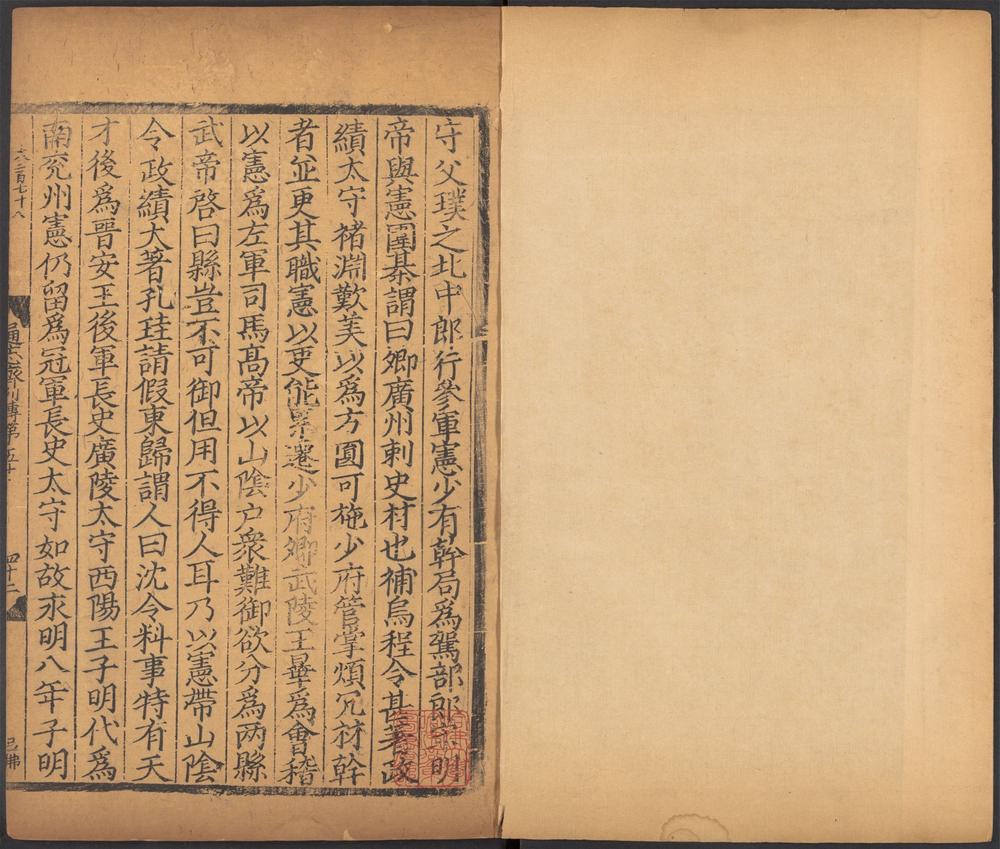 守父璞之北中郎行參軍憲少有幹局爲駕部郎宋明
帝與憲圍棊謂曰卿廣州刺史材也補烏程令甚著政
績太守褚淵歎美以爲方圓可施少府管掌煩冗材幹
者並更其職憲以吏能累遷少府卿武陵王曅爲會稽
以憲爲左軍司馬高帝以山陰户衆難御欲分爲两縣
武帝啓曰縣豈不可御但用不得人耳乃以憲帶山陰
令政績大著孔珪請假東歸謂人曰沈令料事特有天
才後爲晉安王後軍長史廣陵太守西陽王子明代爲
南兖州憲仍留爲冠軍長史太守如故永明八年子明
六二百七十八
列傳第五十
四十二